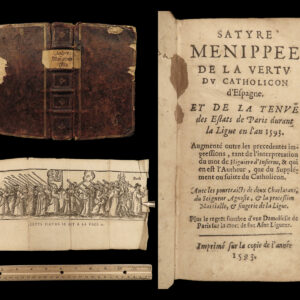 SATYRE
MENIPPEE
DE LA VERTV
DV CATHOLICON
d'Espagne.
ET DE LA TENVË
des Estats de Paris durant
la Ligue en l'an 1593.
Augmenté outre les precedentes im-
pressions, tant de l'interpretation
du mot de Higuiero d'Infierno, & qui
en est l'Autheur, que du Supplé-
ment ou suitte du Catholicon.
Auec les pourtraicts de deux Charlatans,
du Seigneur Agnoste, & la procession
Martialle, & singerie de la Ligue.
Plus le regret funebre d'vne Damoiselle de
Paris sur la mort de son Asne Ligueur.
Imprimé sur la copie de l'année
1593.
Satyre
Menippee